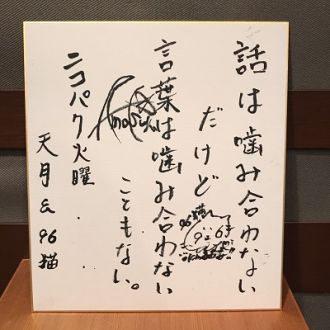 話は噛み合わない
だけど
言葉は噛み合わない
こともない。
ニコパク火曜
天月 & 96猫
96猫